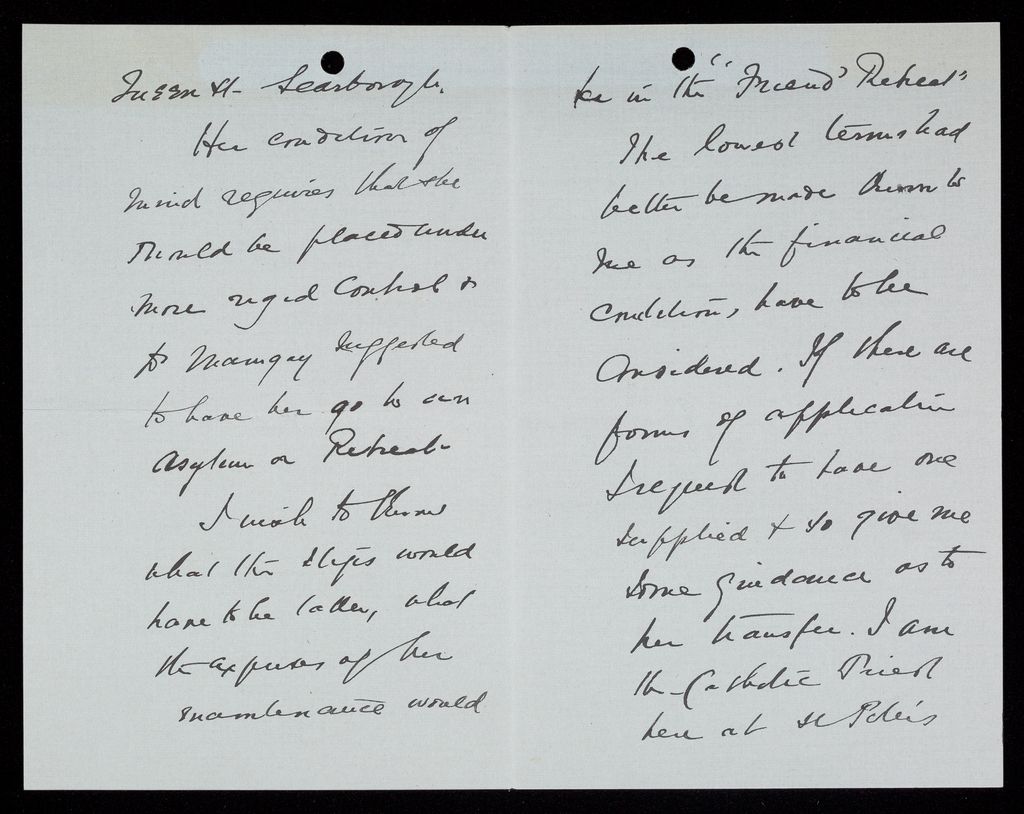 Queen St- Scarborough.
Her condition of
mind requires that she
should be placed under
more rigid Control &
Dr suggested
to have her go to an
Asylum or Retreat
I wish to know
what the steps would
have to be taken, what
the expenses of her
maintenance would
be in the "Friend' Retreat"
The lowest terms had
better be made known to
me as the financial
conditions, have to be
Considered. If there are
forms of application
I request to have one
supplied & to give me
some guidance as to
her transfer. I am
the Catholic Priest
here at St Peter's